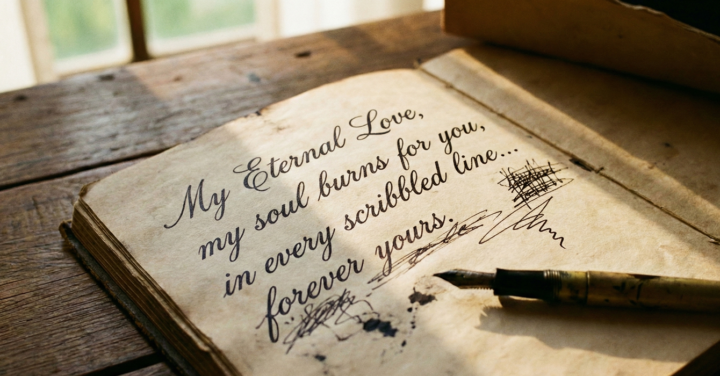 My Eternal Love,
my soul burns for you,
in every scribbled line...
forever yours.